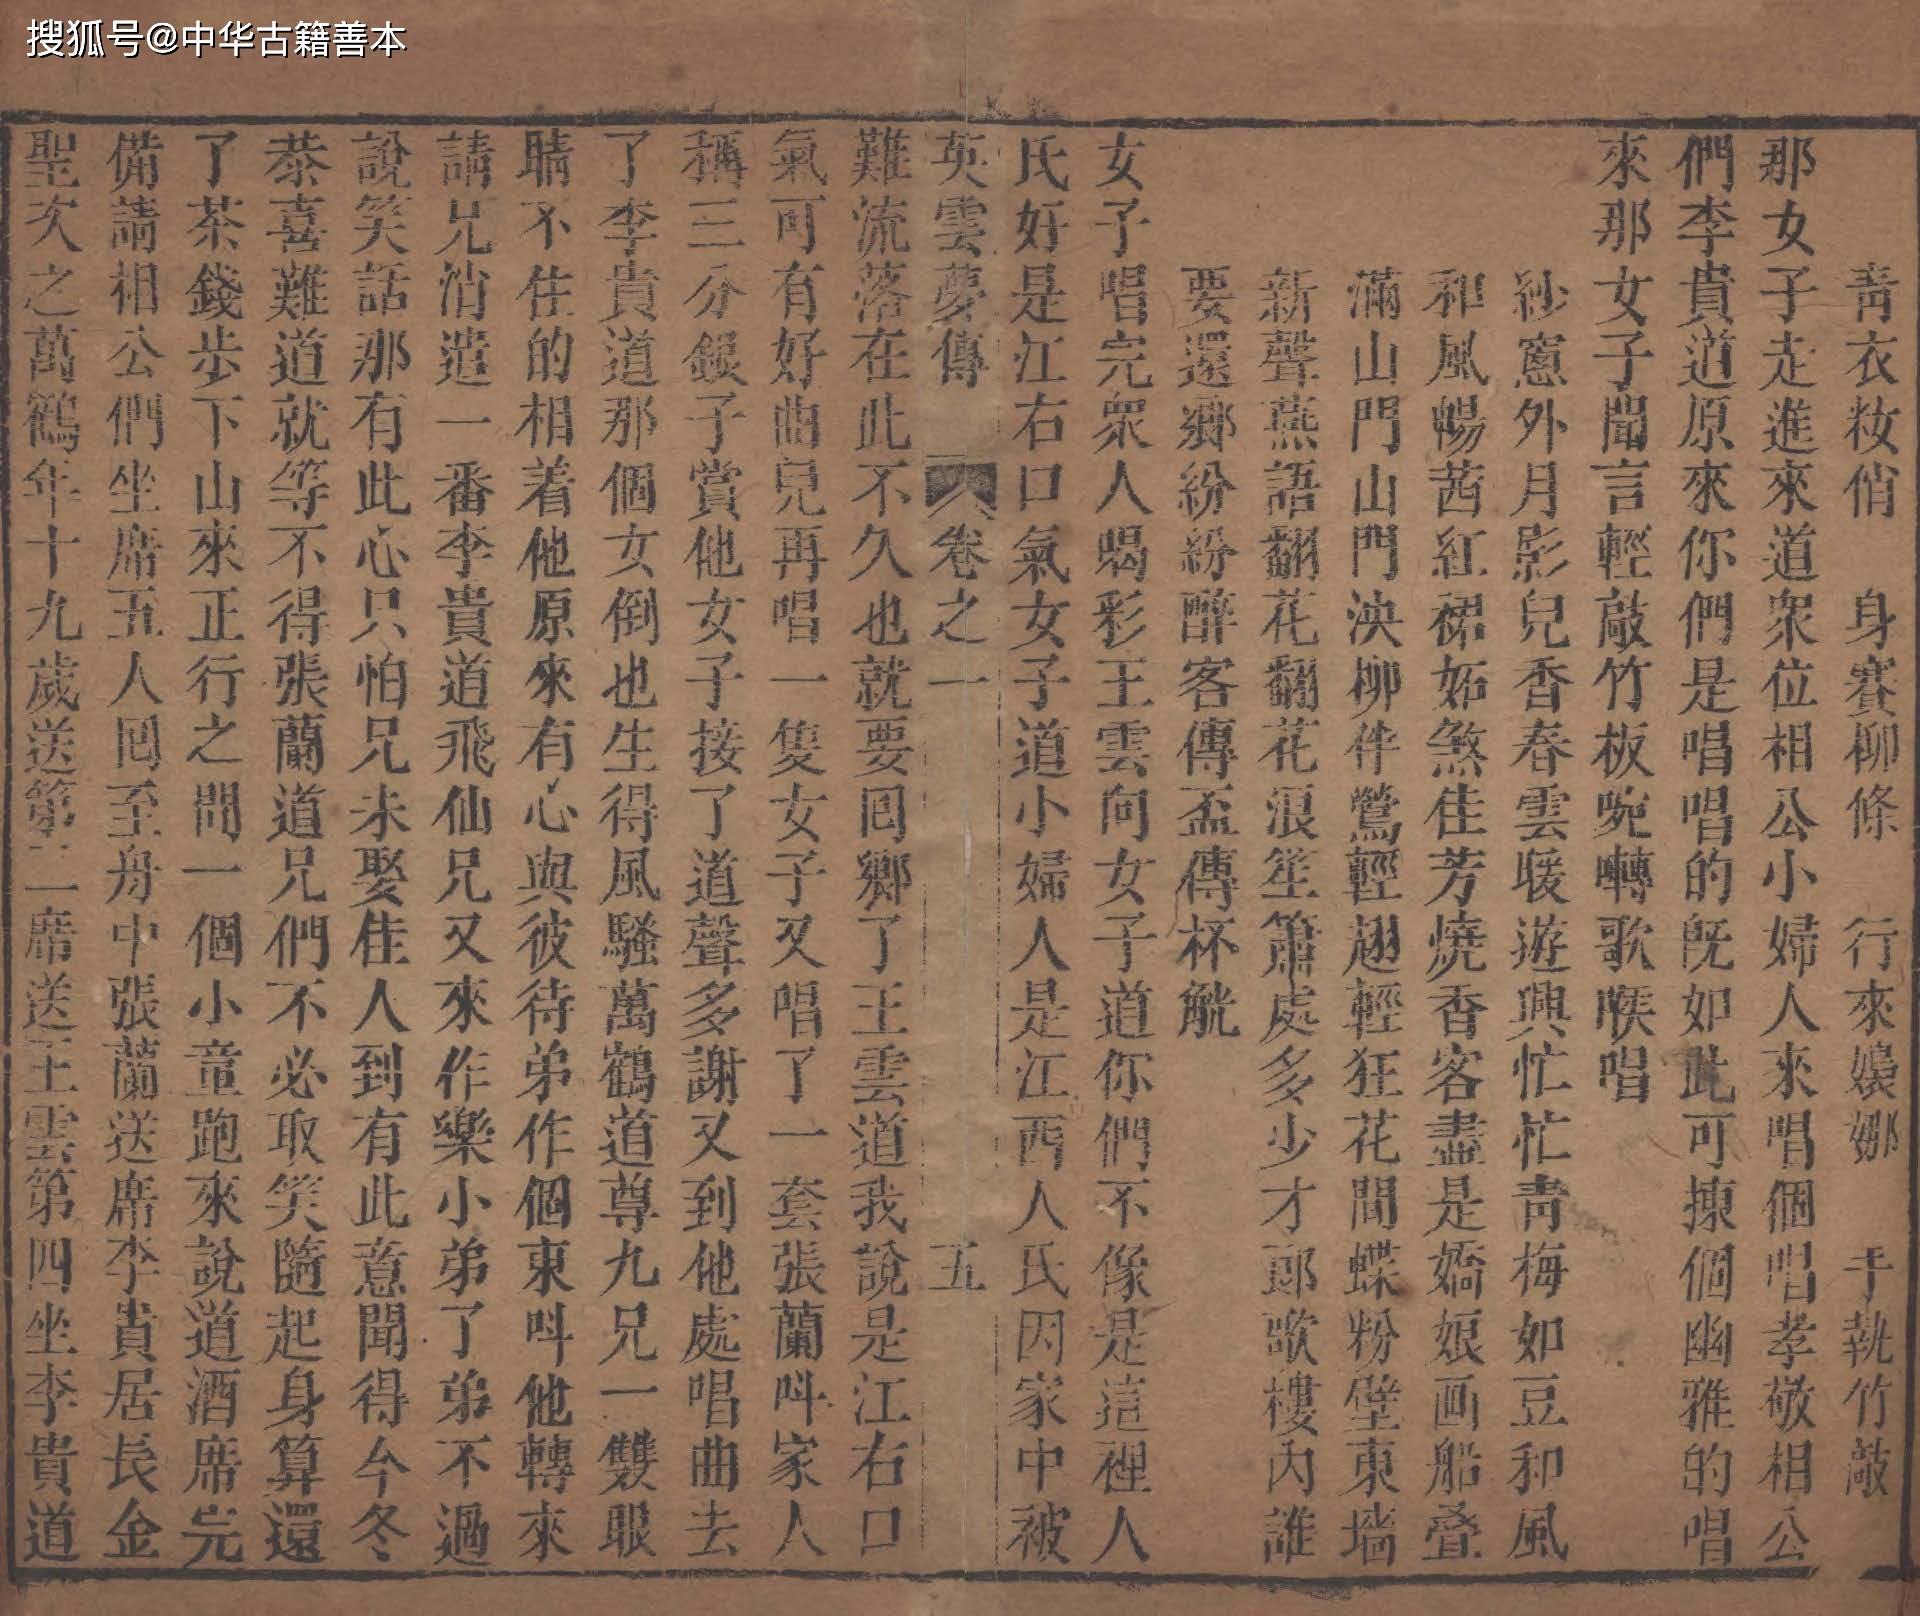 搜狐号@中华古籍善本
青衣妝俏　身賽柳條　行來嬝娜　手執竹敲
那女子走進來道衆位相公小婦人來唱個唱孝敬相公
們李貴道原來你們是唱唱的旣如此可揀個幽雅的唱
來那女子聞言輕敲竹板婉囀歌喉唱
紗窓外月影兒香春雲暖遊興忙忙靑梅如豆和風
和風暢茜紅裙妬煞佳芳燒香客盡是嬌娘画船叠
滿山門山門泱柳伴鶯輕翅輕狂花間蝶粉壁東墻
新聲燕語翻花翻花浪笙簫處多少才郎歌樓內誰
要還鄉紛紛醉客傳盃傳杯觥
女子唱完衆人喝彩王雲向女子道你們不像是這裡人
氏好是江右口氣女子道小婦人是江西人氏因家中被
英雲夢傳　卷之一　五
難流落在此不久也就要囘鄉了王雲道我說是江右口
氣可有好曲兒再唱一隻女子又唱了一套張蘭呌家人
稱三分銀子賞他女子接了道聲多謝又到他處唱曲去
了李貴道那個女倒也生得風騷萬鶴道尊九兄一雙眼
睛不住的相着他原來有心與彼待弟作個東呌他轉來
請兄消遣一番李貴道飛仙兄又來作樂小弟了弟不過
說笑話那有此心只怕兄未娶佳人到有此意聞得今冬
恭喜難道就等不得張蘭道兄們不必取笑隨起身算還
了茶錢步下山來正行之間一個小童跑來說道酒席完
備請相公們坐席五人囘至舟中張蘭送席李貴居長金
聖次之萬鶴年十九歲送第二席送王雲第四坐李貴道